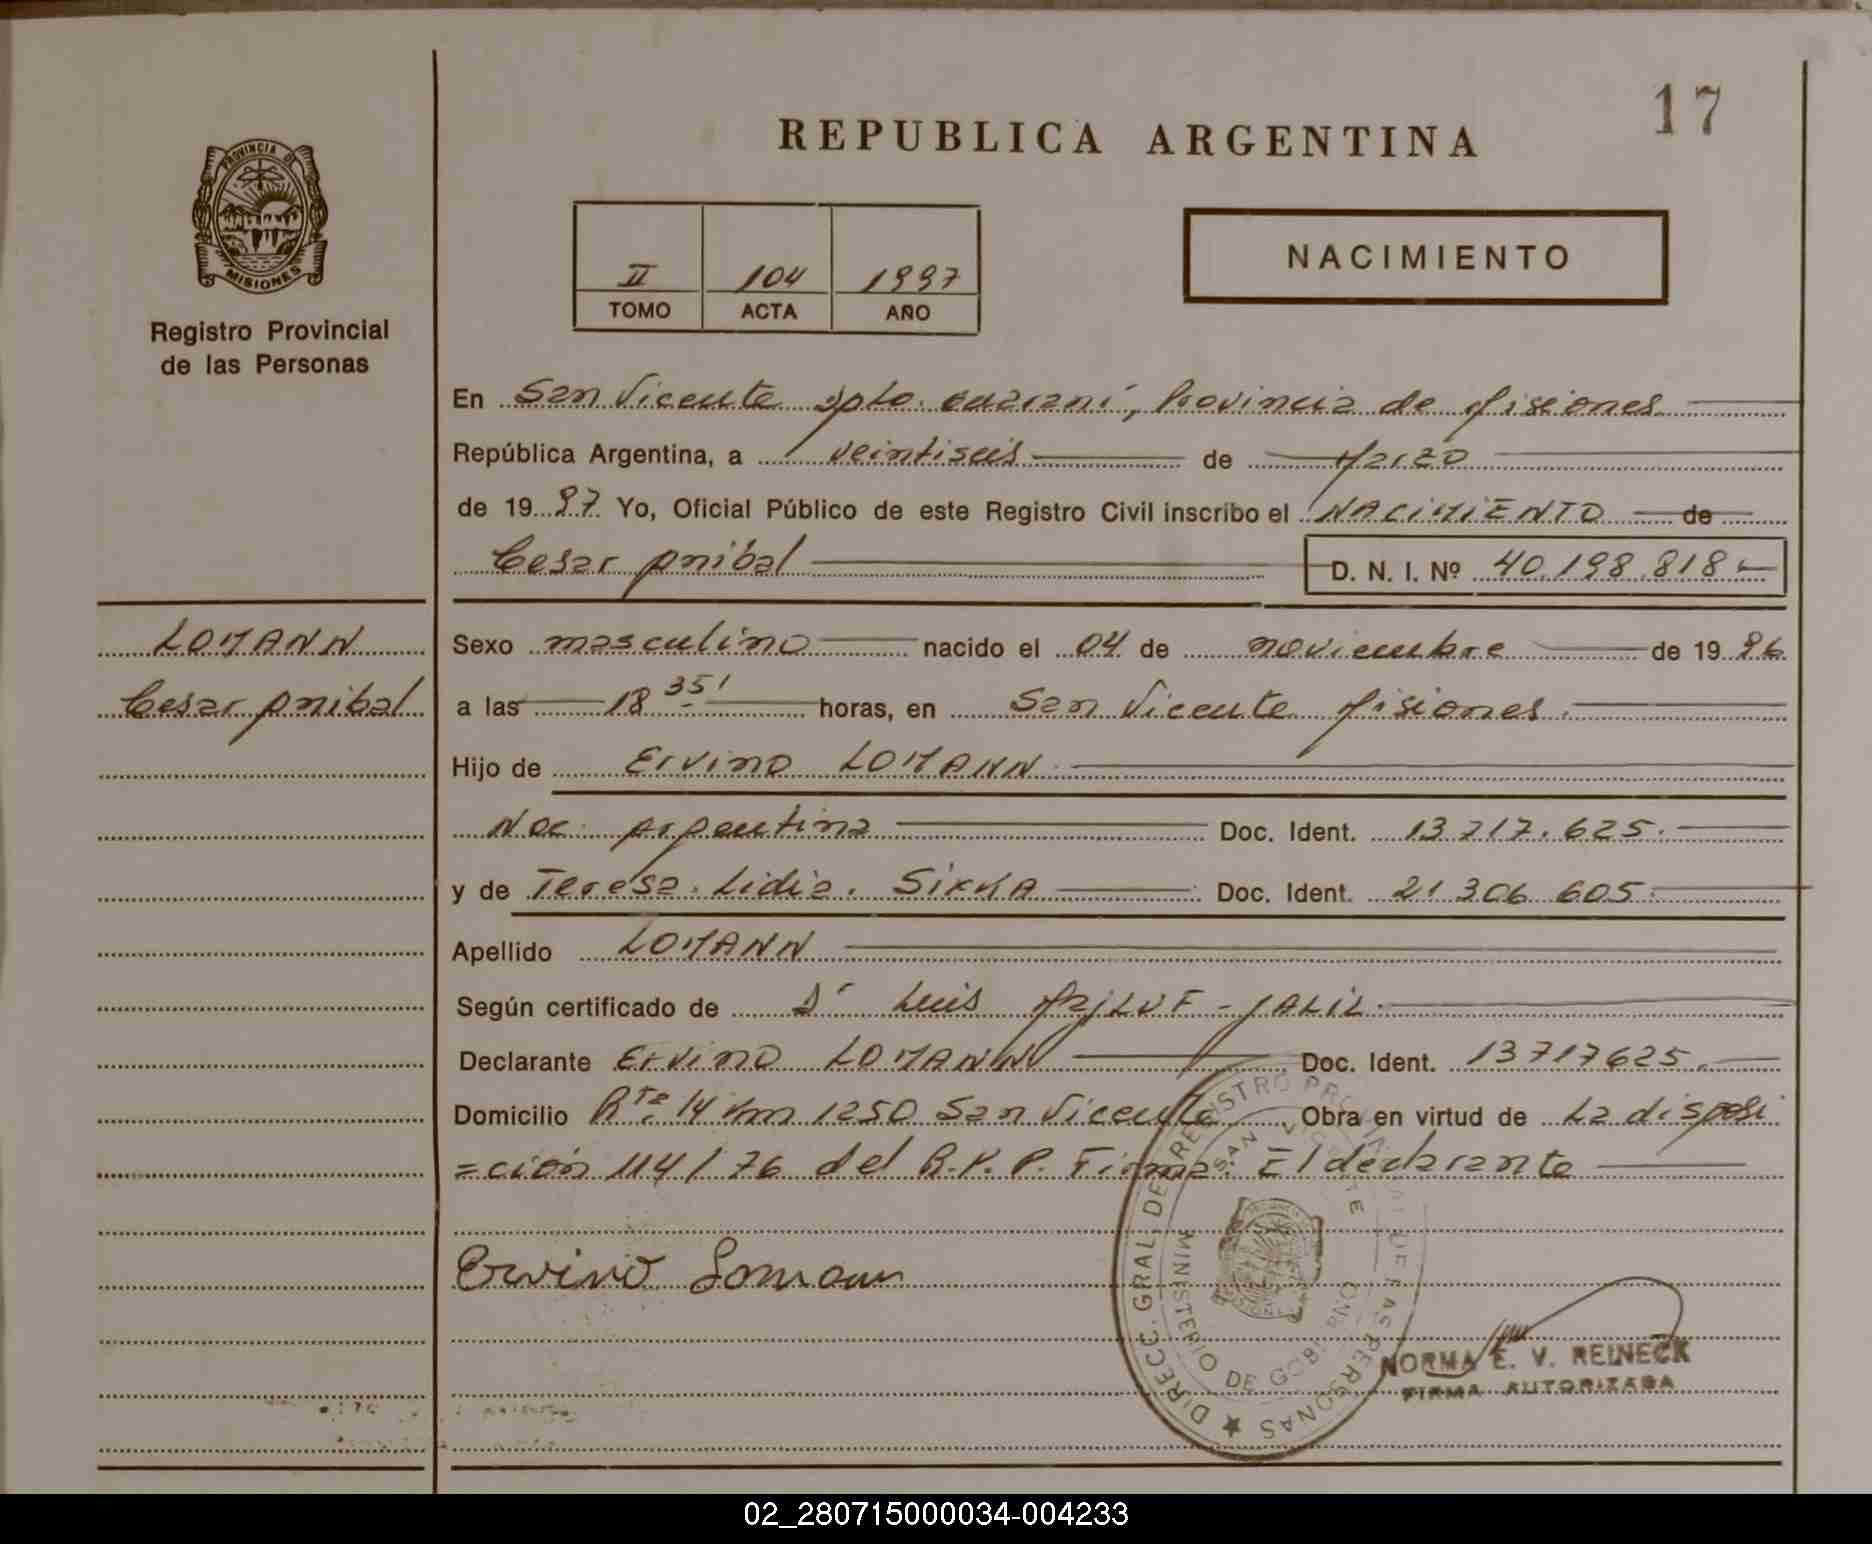 17
REPUBLICA ARGENTINA
PROVINCIA DE
MISIONES
Registro Provincial
de las Personas
II 104 1997
TOMO ACTA AÑO
NACIMIENTO
En San Vicente Dpto. Guaraní, Provincia de Misiones
República Argentina, a veintiseis de Marzo
de 1997 Yo, Oficial Público de este Registro Civil inscribo el NACIMIENTO de
Cesar Anibal D. N. I. Nº 40.198.818
LOMANN
Cesar Anibal
Sexo masculino nacido el 04 de noviembre de 1996
a las 18 35' horas, en San Vicente Misiones.
Hijo de Ervino LOMANN
Nac. Argentina Doc. Ident. 13.717.625.
y de Teresa Lidia. Doc. Ident. 21.306.605.
Apellido LOMANN
Según certificado de Dr Luis JALIL.
Declarante Ervino LOMANN Doc. Ident. 13717625.
Domicilio Rta. 14 Km 1250 San Vicente Obra en virtud de La disposi
=ción 114/76 del R.P.P. Firma: El declarante
Ervino Lomann
DIRECC. GRAL. DE REGISTRO PROVINCIAL DE LAS PERSONAS
MINISTERIO DE GOBIERNO
SAN VICENTE
NORMA E. V. REINECK
FIRMA AUTORIZADA
02_280715000034-004233